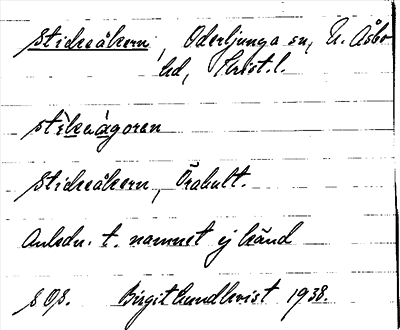 Stickeåkern, Oderljunga sn, N. Åsbo
hd, Krist. l.
Stickeåkern, Örahult.
Anledn. t. namnet ej känd
S Os. Birgit Lundkvist 1938.